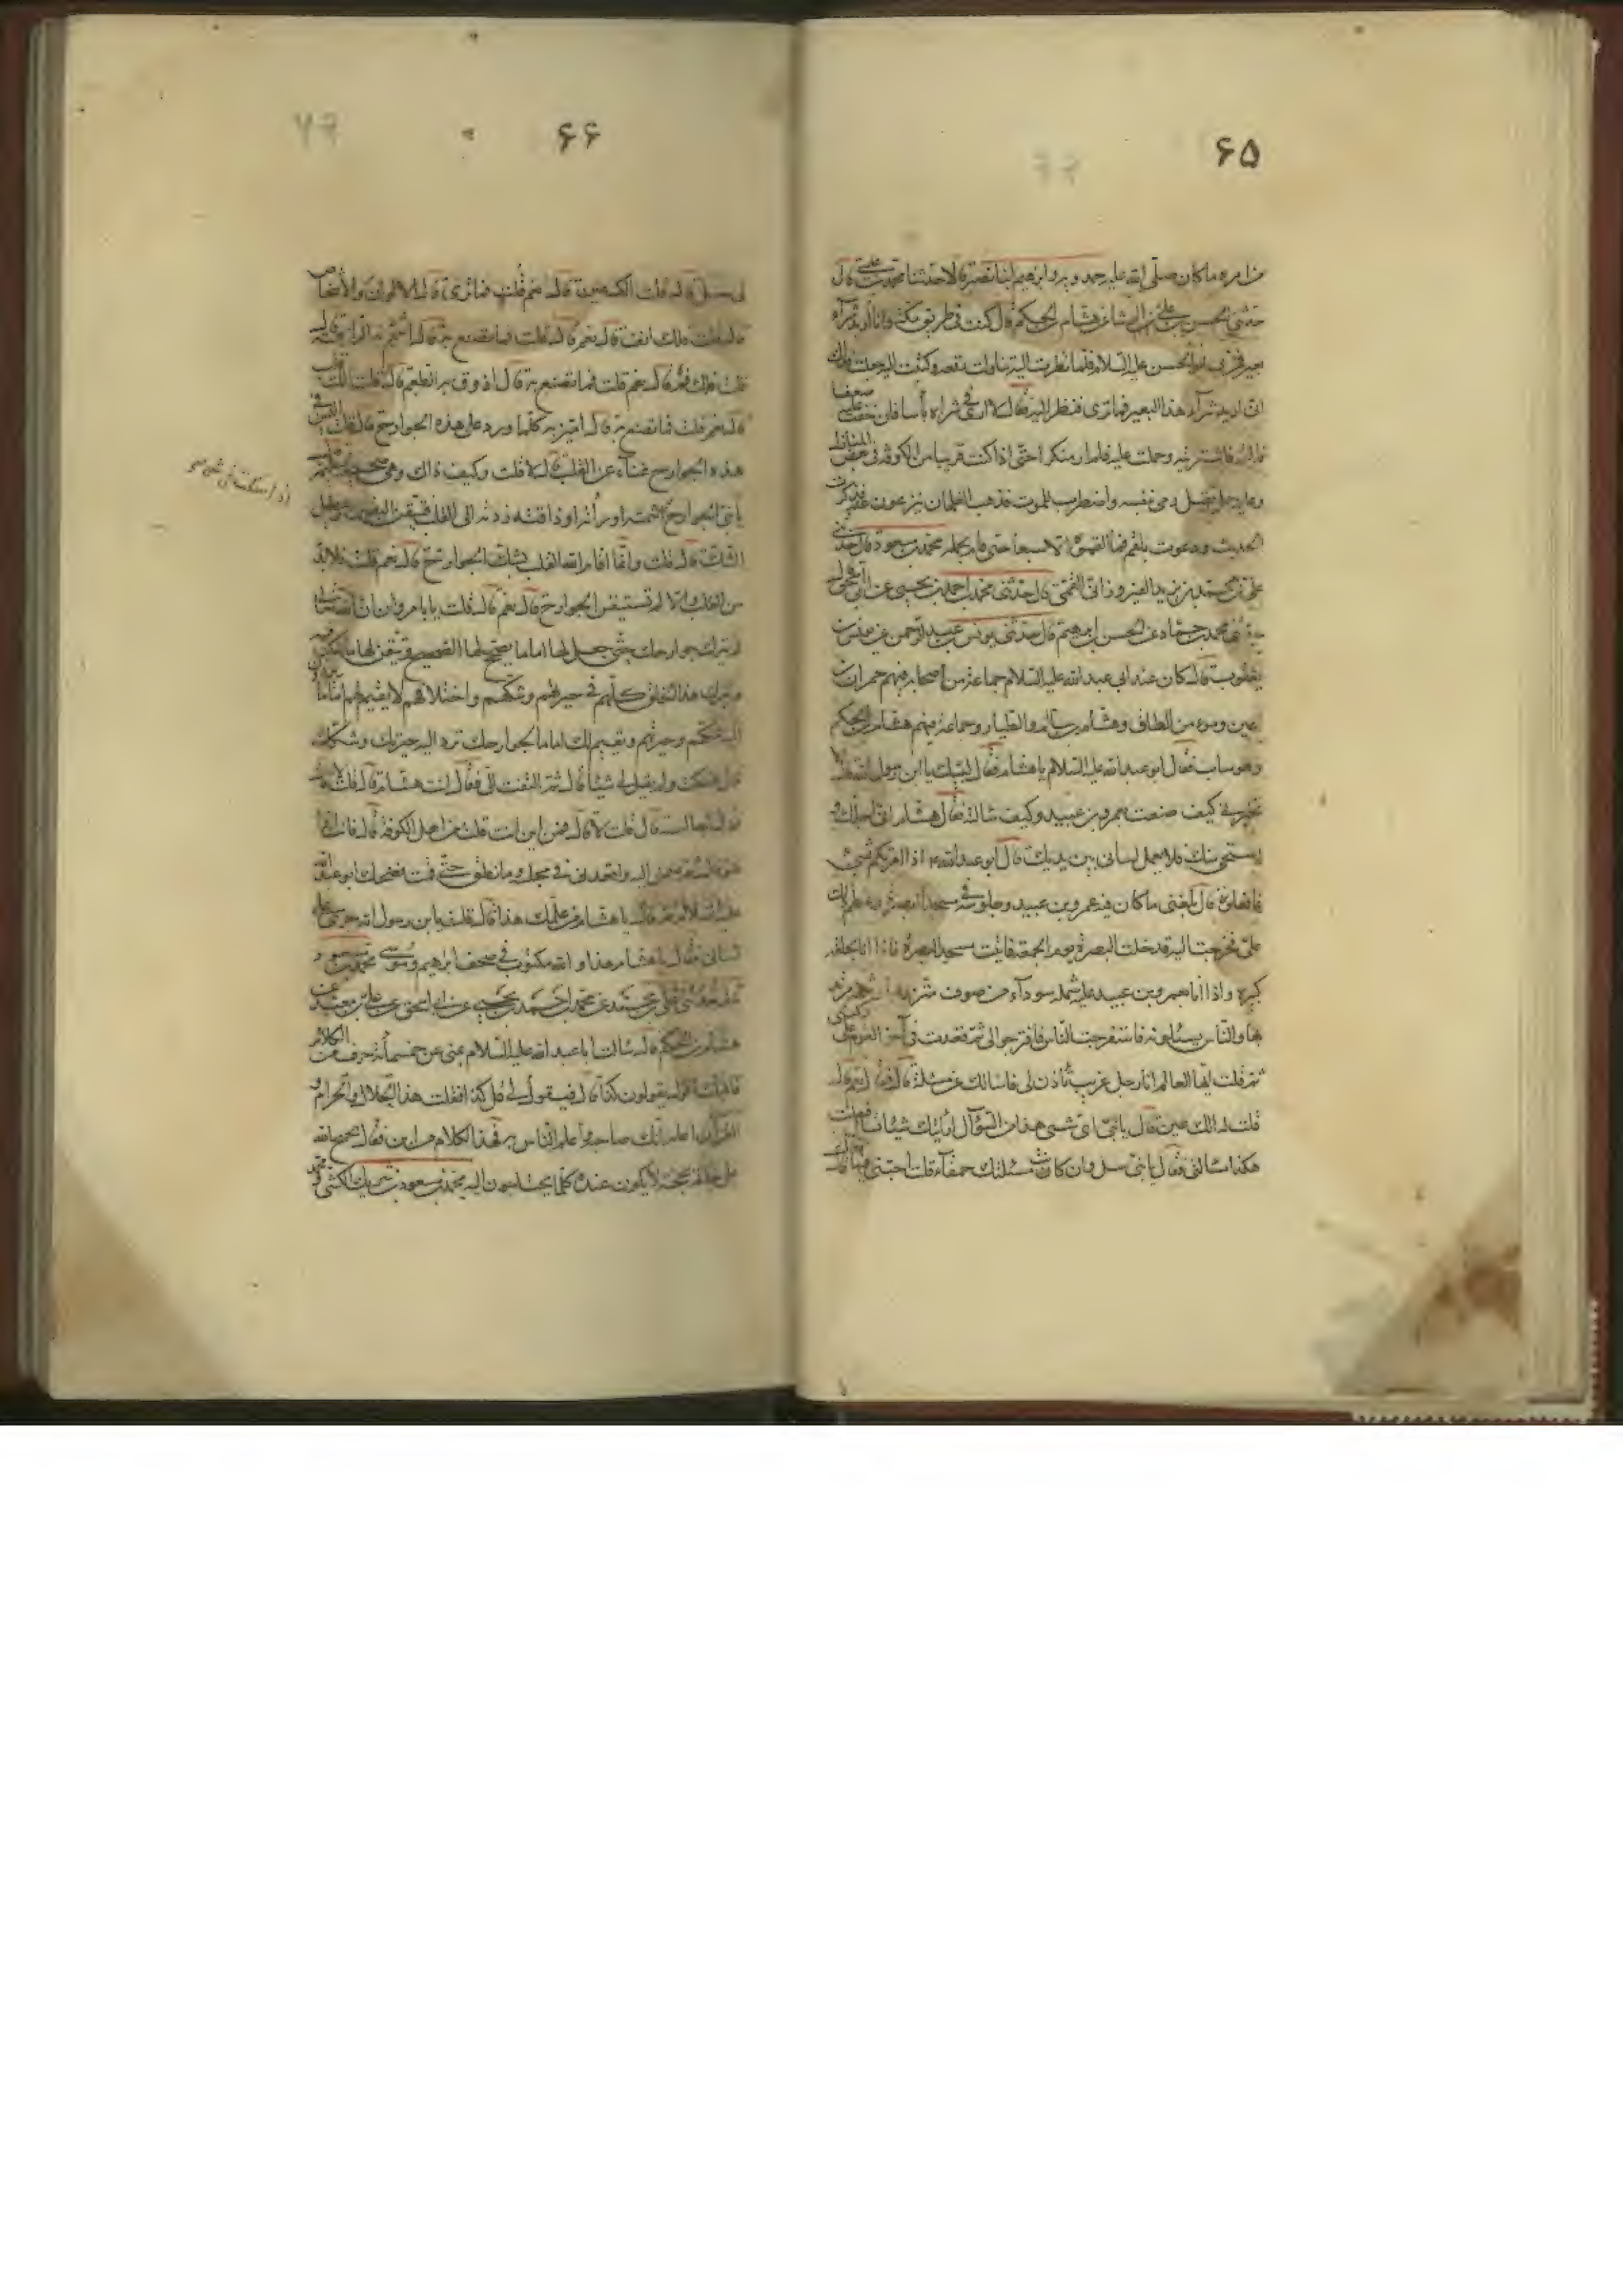 ۶۵
من امره ما كان صلى الله عليه حمدويه وابراهيم ابنا نصير قالا حدثنا محمد بن عيسى قال
حدثنى الحسن بن على بن الوشا عن هشام بن الحكم قال كنت فى طريق مكة وانا اريد شراء
بعير فمر بى ابو الحسن عليه السلام فلما نظرت اليه تناولت رقعة وكتبت اليه جعلت فداك
انى اريد شراء هذا البعير فما ترى فنظر اليه فقال لا ارى فى شراه بأسا فان خفت عليه ضعفا
فالقمه فاشتريته وحملت عليه فلم ار منكرا حتى اذا كنت قريبا من الكوفة فى بعض المنازل
وعليه حمل ثقيل رمى بنفسه واضطرب للموت فذهب الغلمان ينزعون عنه فذكرت
الحديث ودعوت بلقم فما القموه الا سبعا حتى قام بحمله محمد بن مسعود قال حدثنى
على بن محمد بن يزيد الفيروزانى القمى قال حدثنى محمد بن احمد بن يحيى عن ابى اسحق
قال محمد بن حماد عن الحسن بن ابرهيم قال حدثنى يونس بن عبد الرحمن عن يونس بن
يعقوب قال كان عند ابى عبد الله عليه السلام جماعة من اصحابه فيهم حمران بن
اعين ومومن الطاق وهشام بن سالم والطيار وجماعة فيهم هشام بن الحكم
وهو شاب فقال ابو عبد الله عليه السلام يا هشام فقال لبيك يا ابن رسول الله قال الا
تخبرنى كيف صنعت بعمرو بن عبيد وكيف سالته فقال هشام انى اجلك و
استحى منك فلا يعمل لسانى بين يديك قال ابو عبد الله ع اذا امرتكم بشئ
فافعلوه قال بلغنى ما كان فيه عمرو بن عبيد وجلوسه فى مسجد البصرة وعظم ذلك
على فخرجت اليه فدخلت البصرة يوم الجمعة فاتيت مسجد البصرة فاذا انا بحلقة
كبيرة واذا انا بعمرو بن عبيد عليه شملة سوداء من صوف متزر بها وشملة مرتد
بها والناس يسئلونه فاستفرجت الناس فافرجوا لى ثم قعدت فى آخر القوم على ركبتى
ثم قلت ايها العالم انا رجل غريب تأذن لى فاسالك عن مسئلة قال فقال نعم قال
قلت له الك عين قال يا بنى اى شئ هذا من السؤال ارايتك شيئا فقلت
هكذا مسالتى فقال يا بنى سل وان كانت مسئلتك حمقاء قلت اجبنى فيها قال
۶۶
لى سل قال قلت الك عين قال نعم قلت فما ترى بها قال الالوان والاشخاص
قال قلت فلك انف قال نعم قال قلت فما تصنع به قال اشم به الرائحة قال
قلت فلك فم قال نعم قلت فما تصنع به قال اذوق به الطعم قال قلت الك قلب
قال نعم قلت فما تصنع به قال اميز به كلما ورد على هذه الجوارح قال قلت اليس فى
هذه الجوارح غناء عن القلب قال لا قلت وكيف ذاك وهى صحيحة سليمة
يا بنى الجوارح شمته او رأته او ذاقته ردته الى القلب فتيقن اليقين ويبطل
الشك قال قلت وانما اقام الله القلب لشك الجوارح قال نعم قلت فلا بد
من القلب والا لم تستيقن الجوارح قال نعم قال قلت يا با مروان ان الله تعالى
لم يترك جوارحك حتى جعل لها اماما يصحح لها الصحيح وتيقن لها ما شكت فيه
ويترك هذا الخلق كلهم فى حيرتهم وشكهم واختلافهم لا يقيم لهم اماما يردون
اليه شكهم وحيرتهم ويقيم لك اماما لجوارحك ترد اليه حيرتك وشكك
قال فسكت ولم يقل لى شيئا قال ثم التفت الى فقال انت هشام قال قلت لا
قال لى اجالسته قال قلت لا قال فمن اين انت قلت من اهل الكوفة قال فانت اذا
هو قال ثم ضمنى اليه واقعدنى فى مجلسه وما نطق حتى قمت فضحك ابو عبد الله
عليه السلام ثم قال يا هشام من علمك هذا قال قلت يا ابن رسول الله جرى على
لسانى فقال يا هشام هذا والله مكتوب فى صحف ابرهيم وموسى محمد بن مسعود
قال حدثنى على بن محمد عن محمد بن احمد بن يحيى عن ابى اسحق عن على بن معبد عن
هشام بن الحكم قال سالت ابا عبد الله عليه السلام بمنى عن خمسمأة حرف من الكلام
فاقبلت اقول يقولون كذا قال فيقول لى قل كذا فقلت هذا الحلال والحرام و
القرآن اعلم انك صاحبه واعلم الناس به فهذا الكلام من اين فقال يحتج الله
على خلقه بحجة لا يكون عنده كلما يحتاجون اليه محمد بن مسعود بن مزيد الكشى و محمد